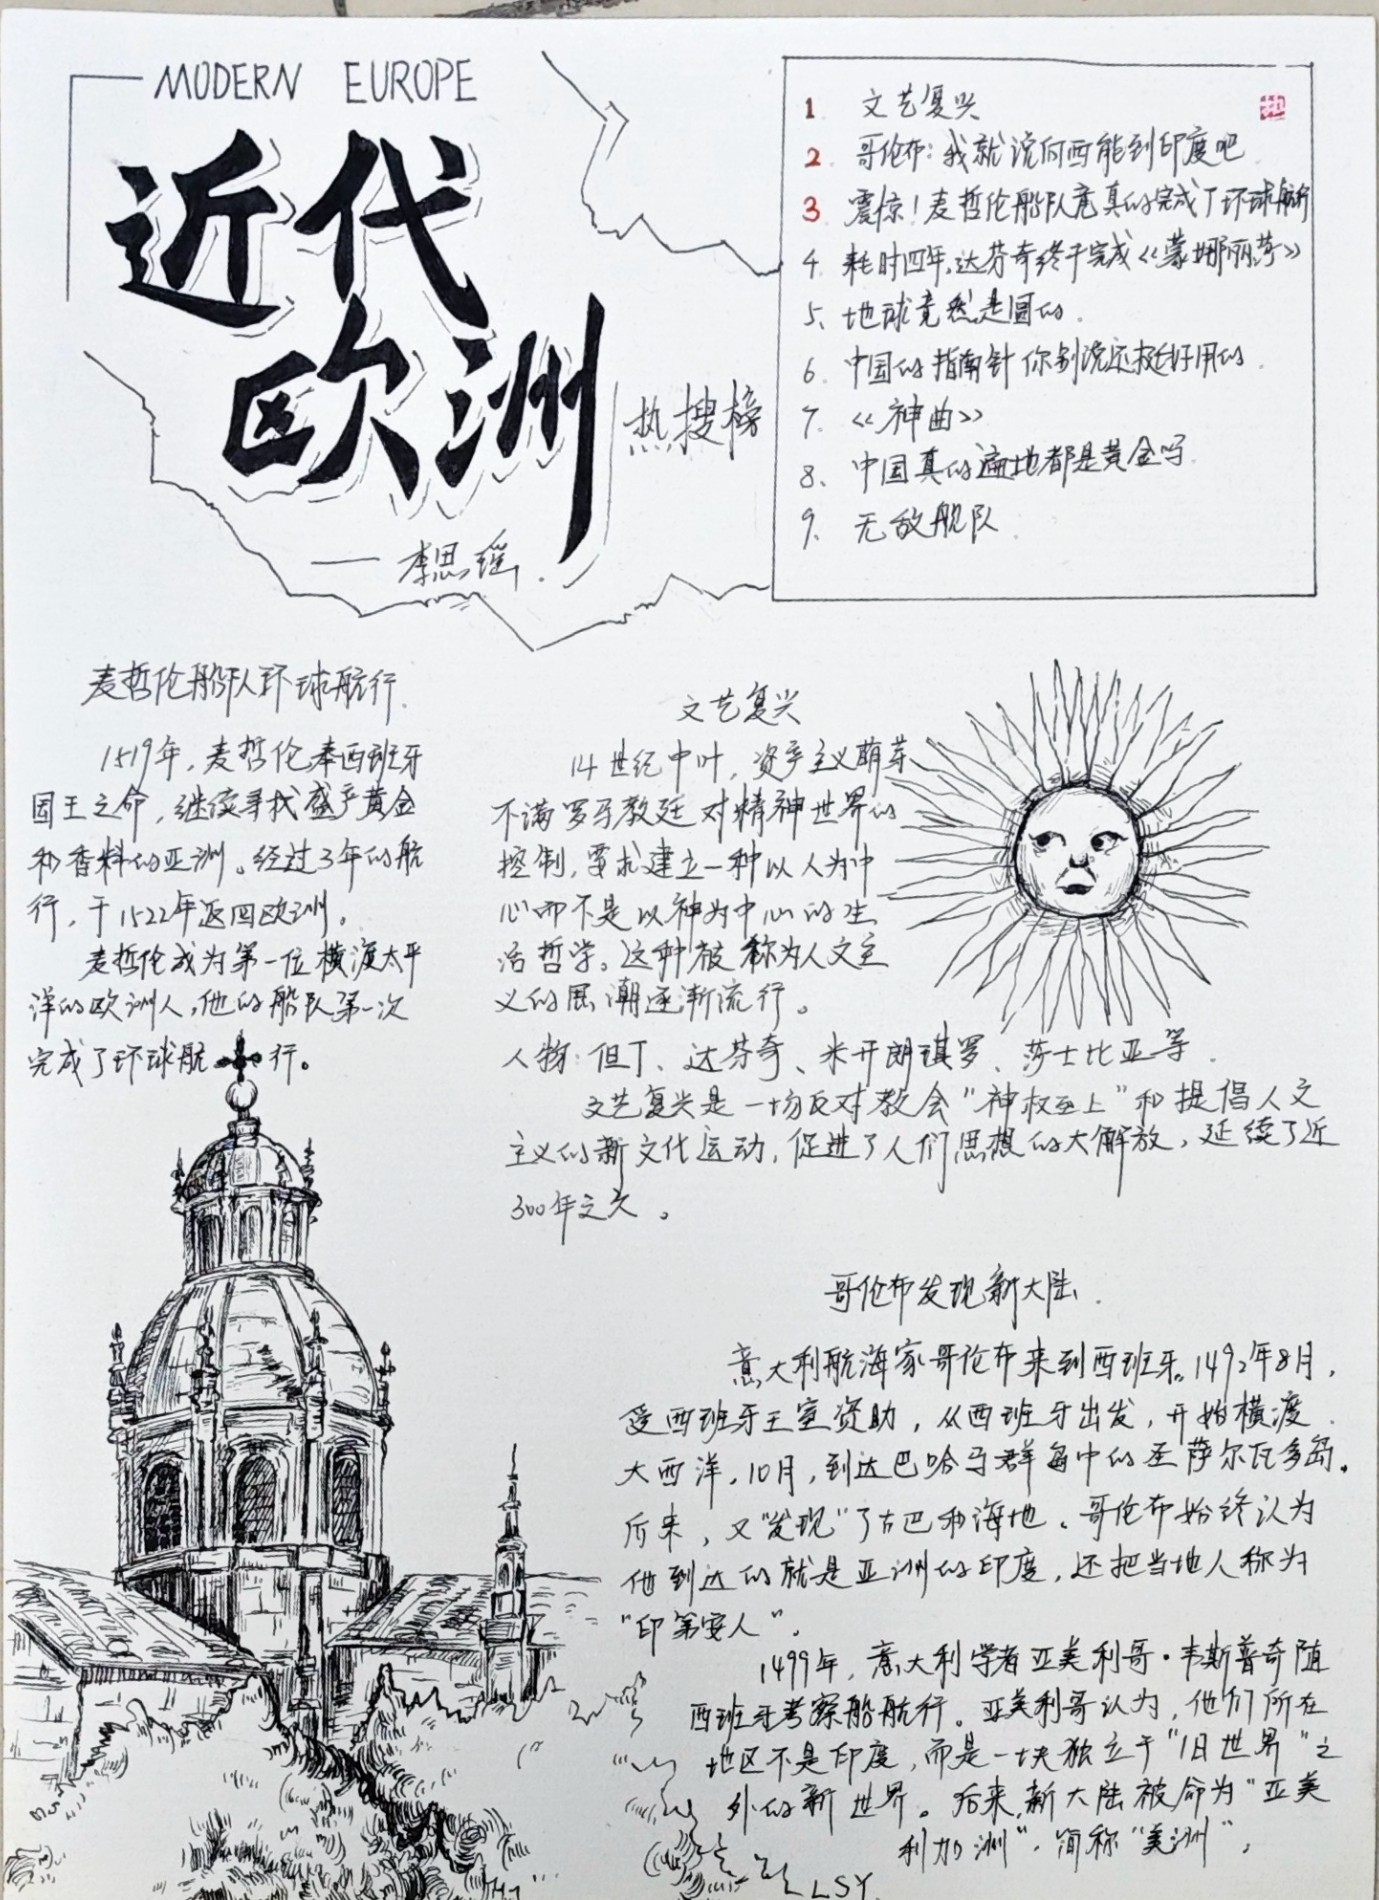 MODERN EUROPE
近代
欧洲
热搜榜
——李思瑶.
1 文艺复兴
热
2 哥伦布:我就说向西能到印度吧
3 震惊!麦哲伦船队竟真的完成了环球航行
4 耗时四年,达芬奇终于完成《蒙娜丽莎》
5、地球竟然是圆的.
6. 中国的指南针 你别说还挺好用的.
7. 《神曲》
8、中国真的遍地都是黄金吗.
9. 无敌舰队.
麦哲伦船队环球航行.
1519年,麦哲伦奉西班牙
国王之命,继续寻找盛产黄金
和香料的亚洲。经过3年的航
行,于1522年返回欧洲。
麦哲伦成为第一位横渡太平
洋的欧洲人,他的船队第一次
完成了环球航行。
文艺复兴
14世纪中叶,资产主义萌芽
不满罗马教廷对精神世界的
控制,要求建立一种以人为中
心而不是以神为中心的生
活哲学。这种被称为人文主
义的思潮逐渐流行。
人物:但丁、达芬奇、米开朗琪罗、莎士比亚等.
文艺复兴是一场反对教会"神权至上"和提倡人文
主义的新文化运动,促进了人们思想的大解放,延续了近
300年之久。
哥伦布发现新大陆.
意大利航海家哥伦布来到西班牙。1492年8月,
受西班牙王室资助,从西班牙出发,开始横渡
大西洋,10月,到达巴哈马群岛中的圣萨尔瓦多岛。
后来,又"发现"了古巴和海地、哥伦布始终认为
他到达的就是亚洲的印度,还把当地人称为
"印第安人".
1499年,意大利学者亚美利哥·韦斯普奇随
西班牙考察船航行。亚美利哥认为,他们所在
地区不是印度,而是一块独立于"旧世界"之
外的新世界。后来,新大陆被命为"亚美
利加洲",简称"美洲".
LSY